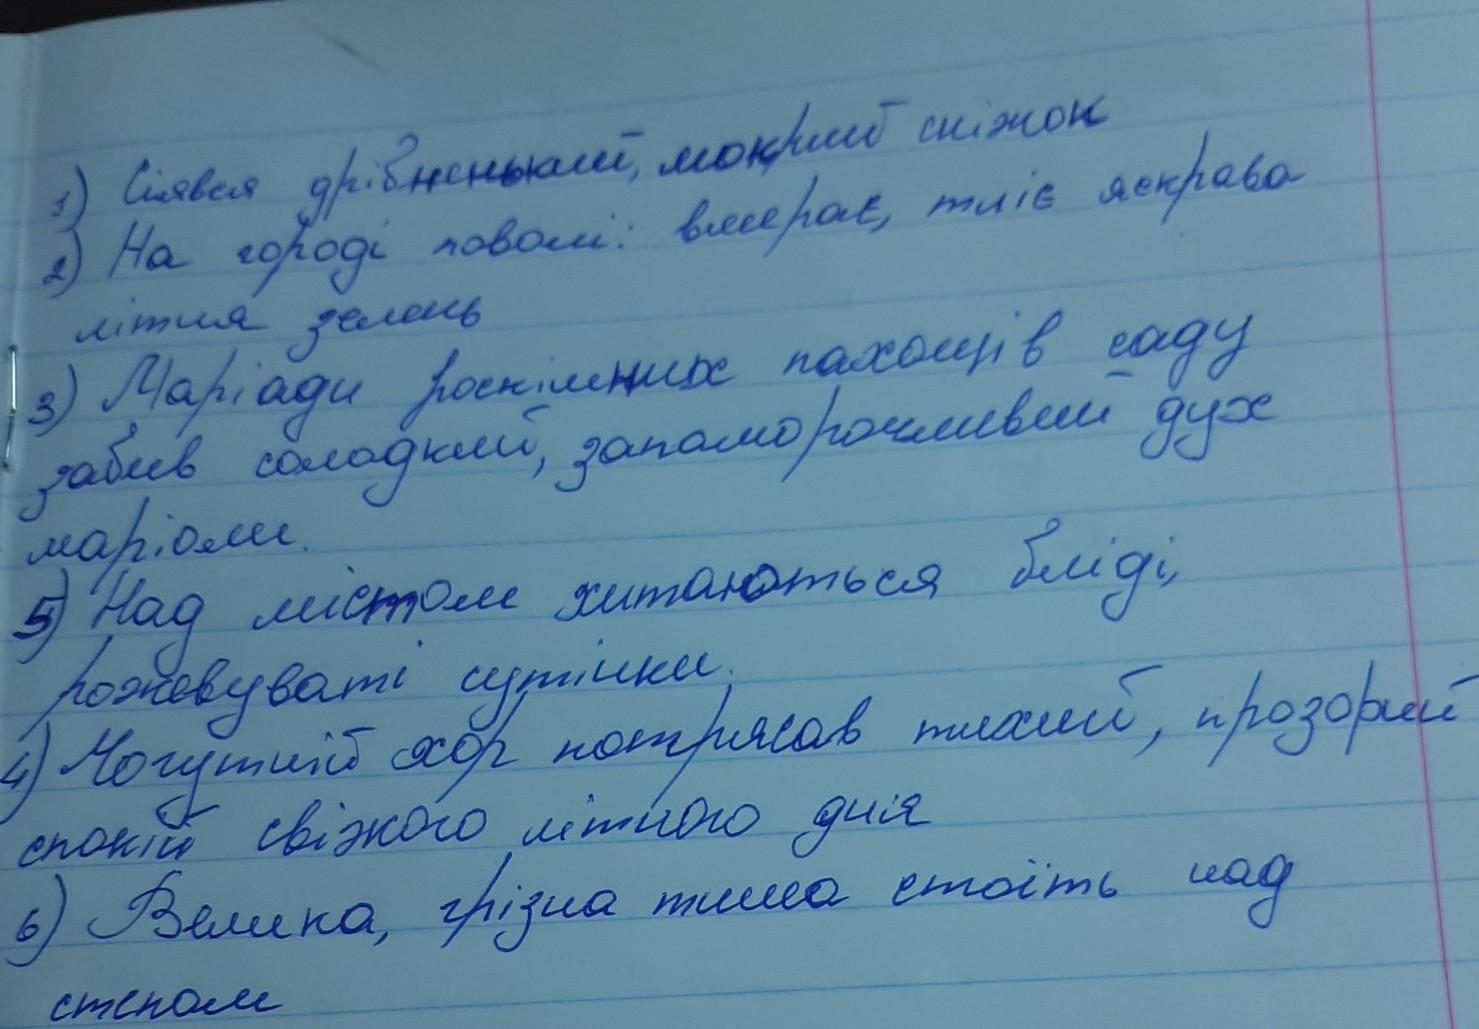 1) Сіявся дрібненький, мокрий сніжок
2) На городі поволі: вмирає, тліє яскрава
літня зелень
3) Маріади розкішних пахощів саду
забив солодкий, запаморочливий дух
маріоли.
5) Над містом хитаються бліді,
рожевуваті сутінки.
4) Могутній хор потрясав тихий, прозорий
спокій свіжого літного дня
6) Велика, грізна тиша стоїть над
степом